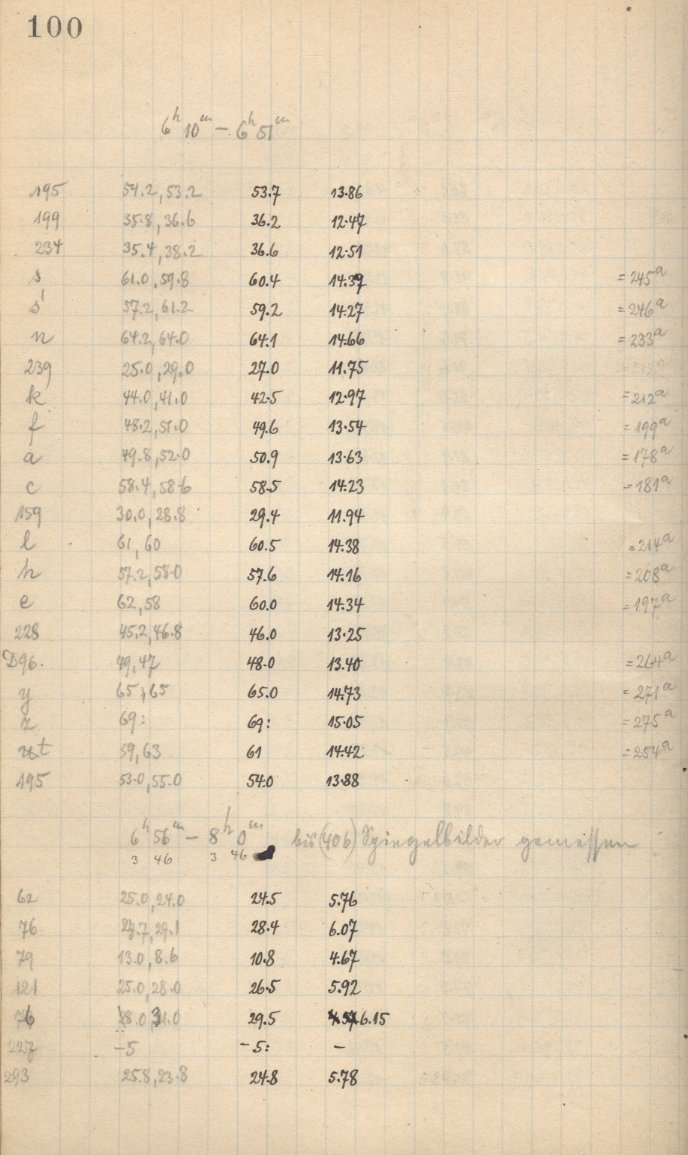 100
6ʰ 10ᵐ – 6ʰ 51ᵐ
195 54.2, 53.2 53.7 13.86
199 35.8, 36.6 36.2 12.47
234 35.4, 38.2 36.6 12.51
s 61.0, 59.8 60.4 14.37 = 245ᵃ
s' 57.2, 61.2 59.2 14.27 = 246ᵃ
n 64.2, 64.0 64.1 14.66 = 233ᵃ
239 25.0, 29.0 27.0 11.75
k 44.0, 41.0 42.5 12.97 = 212ᵃ
f 48.2, 51.0 49.6 13.54 = 199ᵃ
a 49.8, 52.0 50.9 13.63 = 178ᵃ
c 58.4, 58.6 58.5 14.23 = 181ᵃ
159 30.0, 28.8 29.4 11.94
l 61, 60 60.5 14.38 = 214ᵃ
h 57.2, 58.0 57.6 14.16 = 208ᵃ
e 62, 58 60.0 14.34 = 197ᵃ
228 45.2, 46.8 46.0 13.25
D96. 49, 47 48.0 13.40 = 264ᵃ
y 65, 65 65.0 14.73 = 271ᵃ
z 69: 69: 15.05 = 275ᵃ
t 59, 63 61 14.42 = 254ᵃ
195 53.0, 55.0 54.0 13.88
6ʰ 56ᵐ – 8ʰ 0ᵐ bis (406) Spiegelbilder gemessen
3 46 3 46
62 25.0, 24.0 24.5 5.76
76 29.1 28.4 6.07
79 13.0, 8.6 10.8 4.67
121 25.0, 28.0 26.5 5.92
76 31.0 29.5 6.15
227 -5 -5: –
293 25.8, 23.8 24.8 5.78